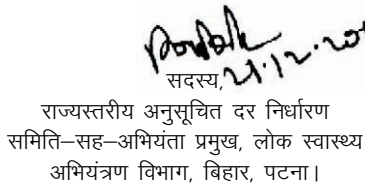 21.12.20
सदस्य,
राज्यस्तरीय अनुसूचित दर निर्धारण
समिति–सह–अभियंता प्रमुख, लोक स्वास्थ्य
अभियंत्रण विभाग, बिहार, पटना।